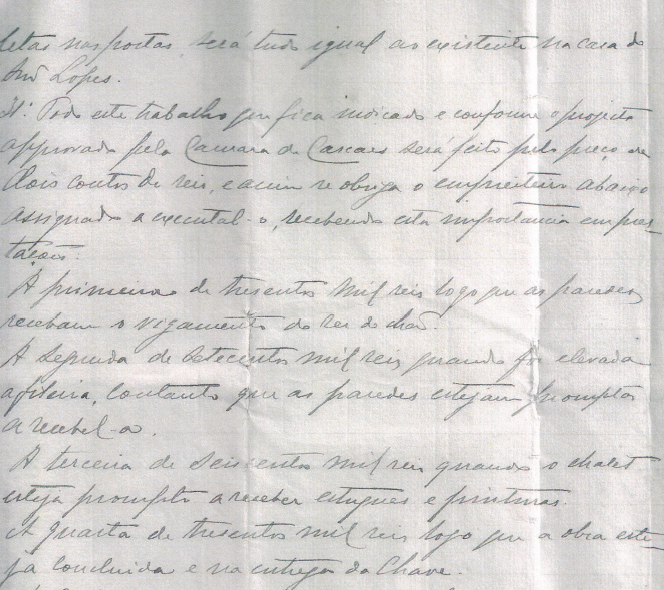 letas nas portas, será tudo igual ao existente na casa do
Snr Lopes.
Todo este trabalho que fica indicado e conforme o projecto
approvado pela Camara de Cascaes será feito pelo preço de
dois contos de reis, e assim se obriga o empreiteiro abaixo
assignado a executal-o, recebendo esta importancia em pres-
tações.
A primeira de tresentos mil reis logo que as paredes
recebam o vigamento do rez do chão.
A segunda de setecentos mil reis quando for elevada
a fileira, contanto que as paredes estejam promptas
a recebel-a.
A terceira de seiscentos mil reis quando o chalet
esteja prompto a receber estuques e pinturas.
A quarta de tresentos mil reis logo que a obra este-
ja concluida e na entrega da chave.